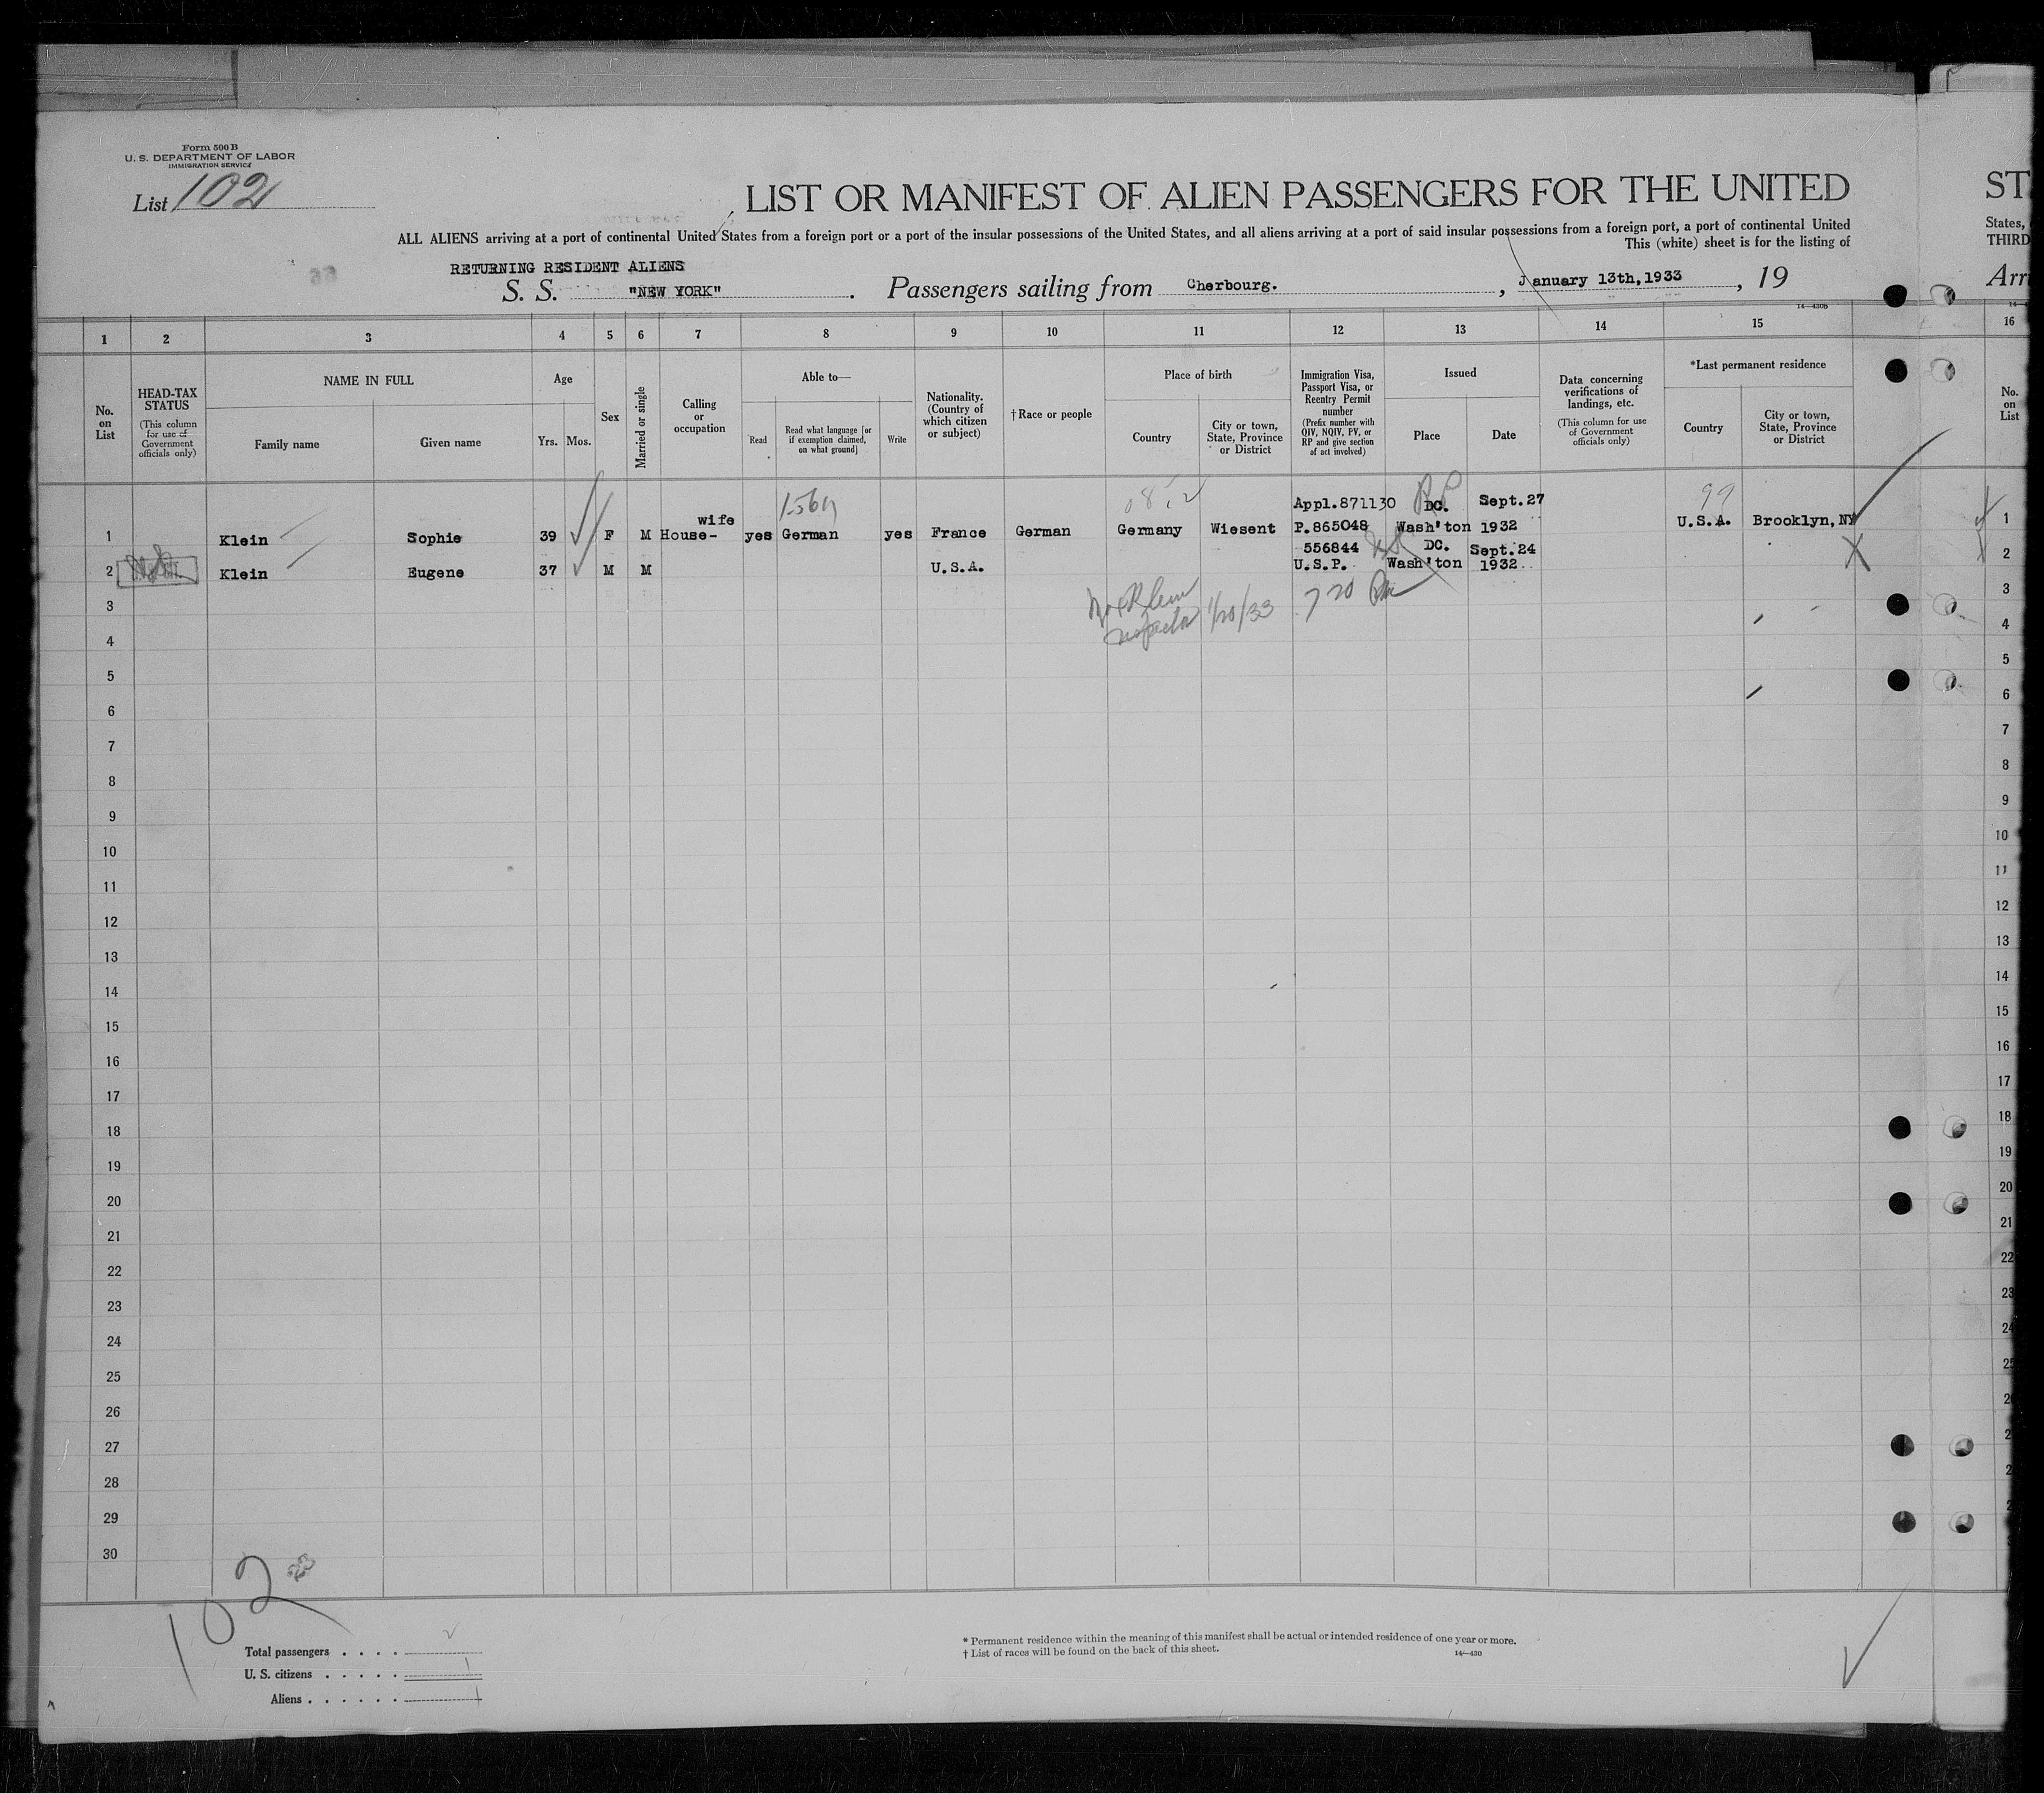 Form 500 B
U. S. DEPARTMENT OF LABOR
IMMIGRATION SERVICE
List 102
LIST OR MANIFEST OF ALIEN PASSENGERS FOR THE UNITED
ST
ALL ALIENS arriving at a port of continental United States from a foreign port or a port of the insular possessions of the United States, and all aliens arriving at a port of said insular possessions from a foreign port, a port of continental United
States,
This (white) sheet is for the listing of
THIRD
RETURNING RESIDENT ALIENS
S. S. "NEW YORK". Passengers sailing from Cherbourg. , January 13th,1933 , 19
Arri
14—430b
1 2 3 4 5 6 7 8 9 10 11 12 13 14 15 16
No. on List
HEAD-TAX STATUS
(This column for use of Government officials only)
NAME IN FULL
Family name
Given name
Age
Yrs.
Mos.
Sex
Married or single
Calling or occupation
Able to—
Read
Read what language [or if exemption claimed, on what ground]
Write
Nationality. (Country of which citizen or subject)
†Race or people
Place of birth
Country
City or town, State, Province or District
Immigration Visa, Passport Visa, or Reentry Permit number
(Prefix number with QIV, NQIV, PV, or RP and give section of act involved)
Issued
Place
Date
Data concerning verifications of landings, etc.
(This column for use of Government officials only)
*Last permanent residence
Country
City or town, State, Province or District
No. on List
Appl.871130 DC. Sept.27
99
1 Klein Sophie 39 F M House-wife yes German yes France German Germany Wiesent P.865048 Wash'ton 1932 U.S.A. Brooklyn, NY 1
556844 DC. Sept.24
2 Klein Eugene 37 M M U.S.A. U.S.P. Wash'ton 1932 2
1/20/33
3 3
4 4
5 5
6 6
7 7
8 8
9 9
10 10
11 11
12 12
13 13
14 14
15 15
16 16
17 17
18 18
19 19
20 20
21 21
22 22
23 23
24 24
25 25
26
27
28
29
30
102
Total passengers . . . .
U. S. citizens . . . . . 1
Aliens . . . . . . 1
* Permanent residence within the meaning of this manifest shall be actual or intended residence of one year or more.
† List of races will be found on the back of this sheet.
14—430